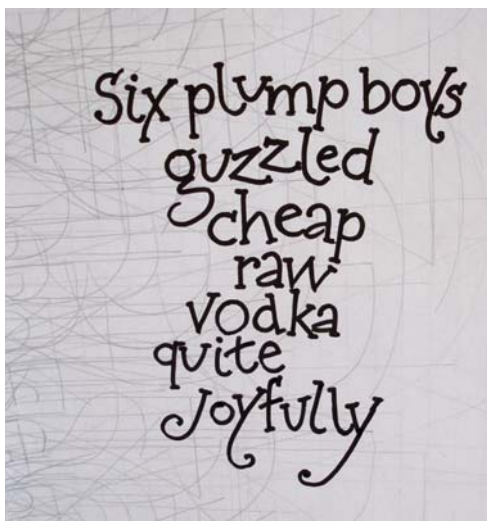 Six plump boys
guzzled
cheap
raw
vodka
quite
joyfully